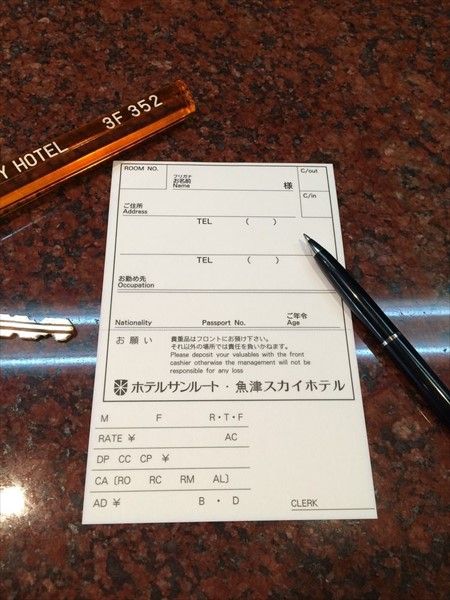 Y HOTEL 3F 352
ROOM NO.
フリガナ
お名前
Name
様
C/out
C/in
ご住所
Address
TEL ( )
TEL ( )
お勤め先
Occupation
Nationality Passport No. ご年令
Age
お願い 貴重品はフロントにお預け下さい。
それ以外の場所では責任を負いかねます。
Please deposit your valuables with the front
cashier otherwise the management will not be
responsible for any loss
ホテルサンルート・魚津スカイホテル
M F R・T・F
RATE ¥ AC
DP CC CP ¥
CA 〔RO RC RM AL〕
AD ¥ B ・ D CLERK